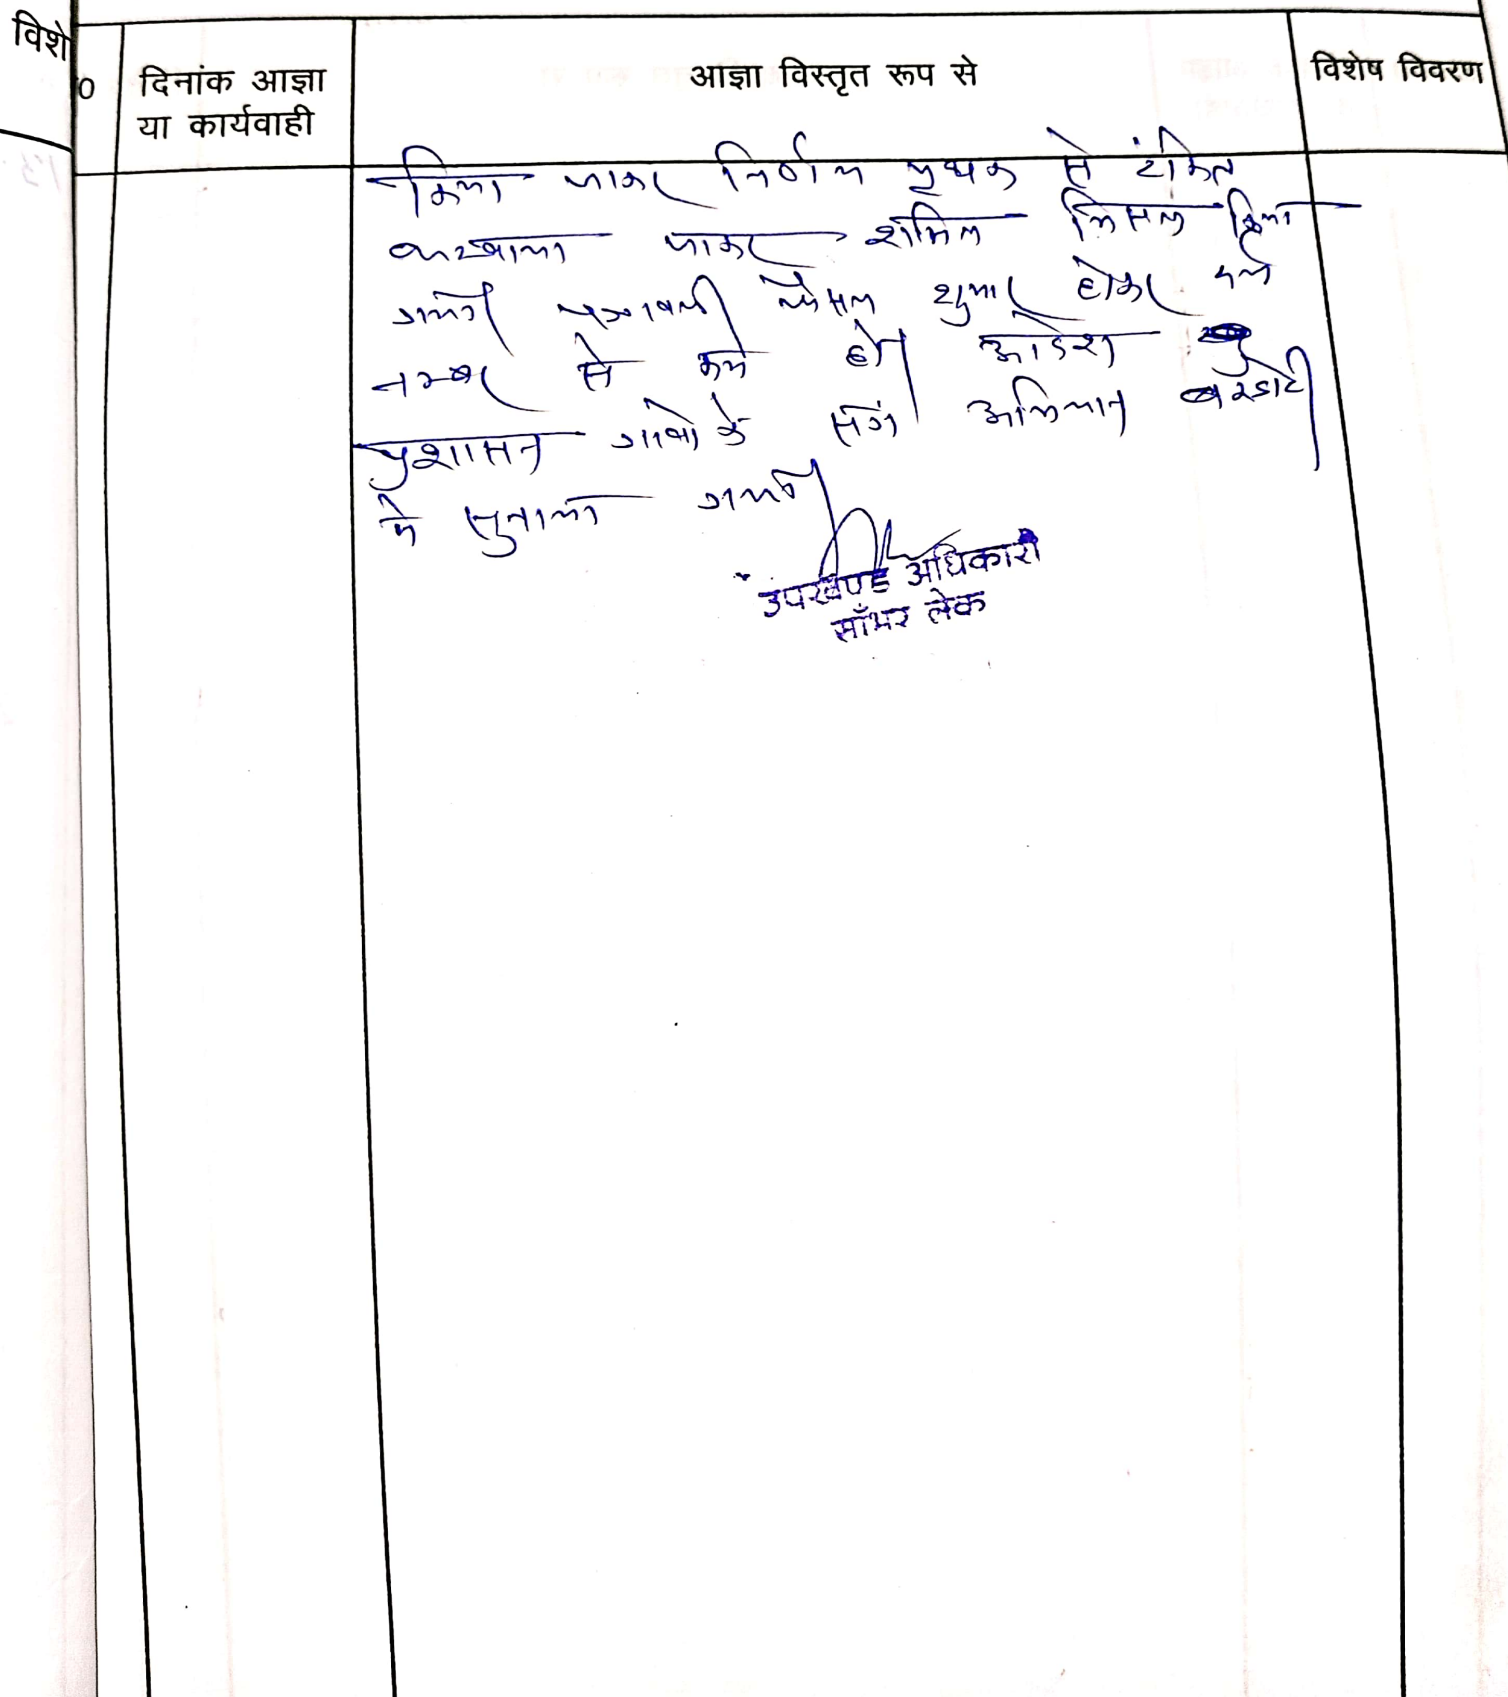 विशे
0
दिनांक आज्ञा
या कार्यवाही
आज्ञा विस्तृत रूप से
विशेष विवरण
किया जाकर निर्णय पृथक से टंकित
करवाया जाकर शामिल मिसल किया
गया। पत्रावली फैसल शुमार होकर
नम्बर से कम हो। आदेश
प्रशासन गांवो के संग अभियान
मे सुनाया गया।
उपखण्ड अधिकारी
साँभर लेक